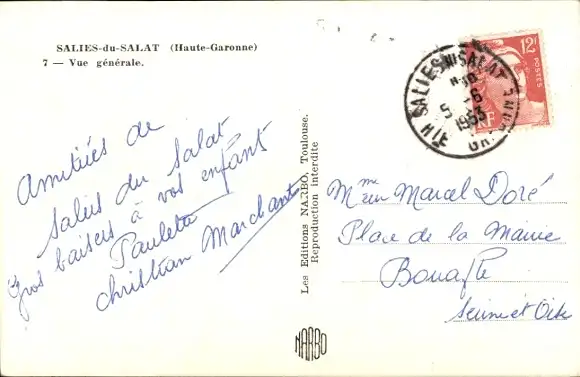 SALIES-du-SALAT (Haute-Garonne)
7 — Vue générale.
Amitiés de
Salies du Salat
Gros baisers à vos enfants
Paulette
Christian Marchant
Les Editions NARBO, Toulouse.
Reproduction interdite
NARBO
SALIES DU SALAT
5 -6
1953
12F
POSTES
RF
Mme Marcel Doré
Place de la Mairie
Bouafle
Seine et Oise